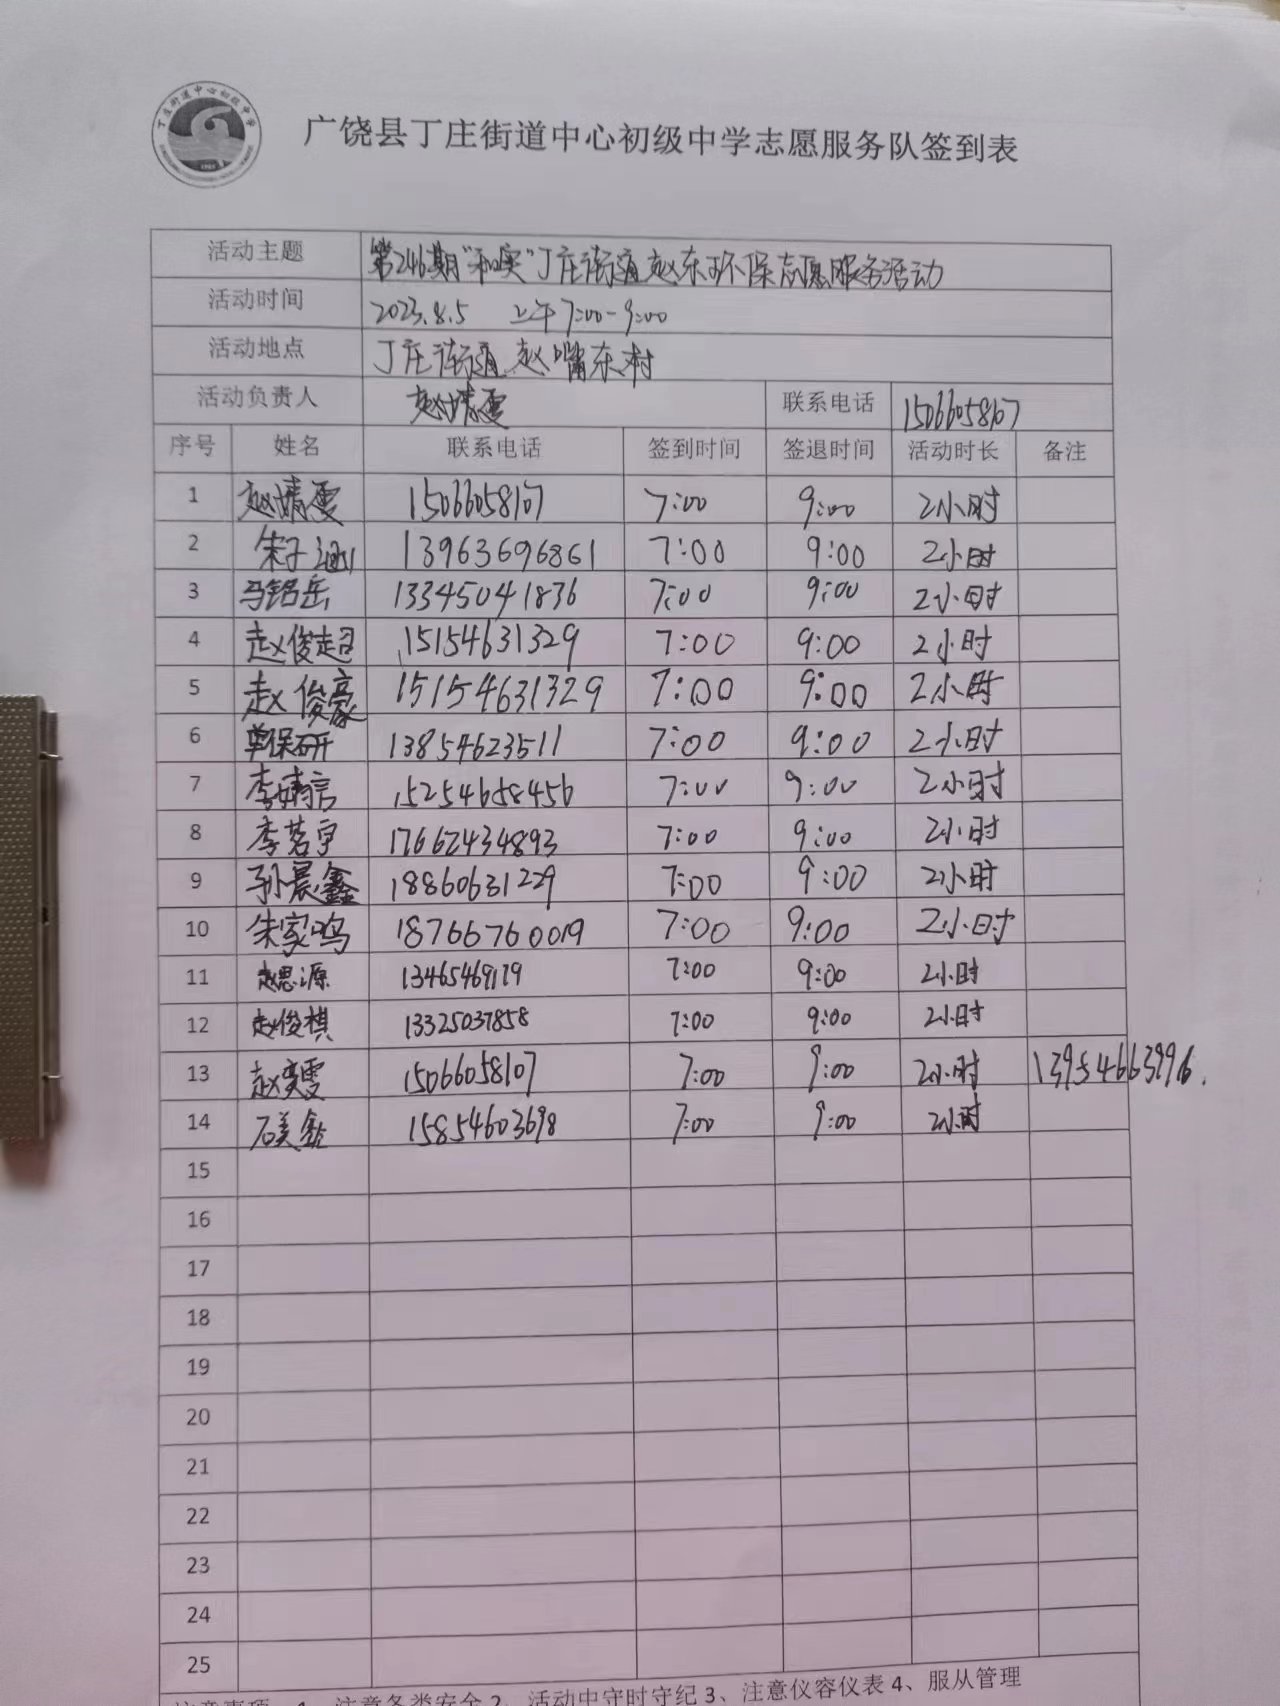 丁庄街道中心初级中学
广饶县丁庄街道中心初级中学志愿服务队签到表
活动主题 第246期"和实"丁庄街道赵东环保志愿服务活动
活动时间 2023.8.5 上午7:00-9:00
活动地点 丁庄街道赵嘴东村
活动负责人 赵婧雯 联系电话 15066058107
序号 姓名 联系电话 签到时间 签退时间 活动时长 备注
1 赵婧雯 15066058107 7:00 9:00 2小时
2 朱子涵 13963696861 7:00 9:00 2小时
3 马铭岳 13345041836 7:00 9:00 2小时
4 赵俊超 15154631329 7:00 9:00 2小时
5 赵俊豪 15154631329 7:00 9:00 2小时
6 单保研 13854623511 7:00 9:00 2小时
7 李婧言 15254658456 7:00 9:00 2小时
8 李茗宇 17662434893 7:00 9:00 2小时
9 孙晨鑫 18860631229 7:00 9:00 2小时
10 朱家鸣 18766760019 7:00 9:00 2小时
11 赵思源 7:00 9:00 2小时
12 赵俊棋 13325037858 7:00 9:00 2小时
13 赵奕雯 15066058107 7:00 9:00 2小时 13954663996.
14 石美鑫 15854603698 7:00 9:00 2小时
15
16
17
18
19
20
21
22
23
24
25
注意事项 1、注意各类安全 2、活动中守时守纪 3、注意仪容仪表 4、服从管理